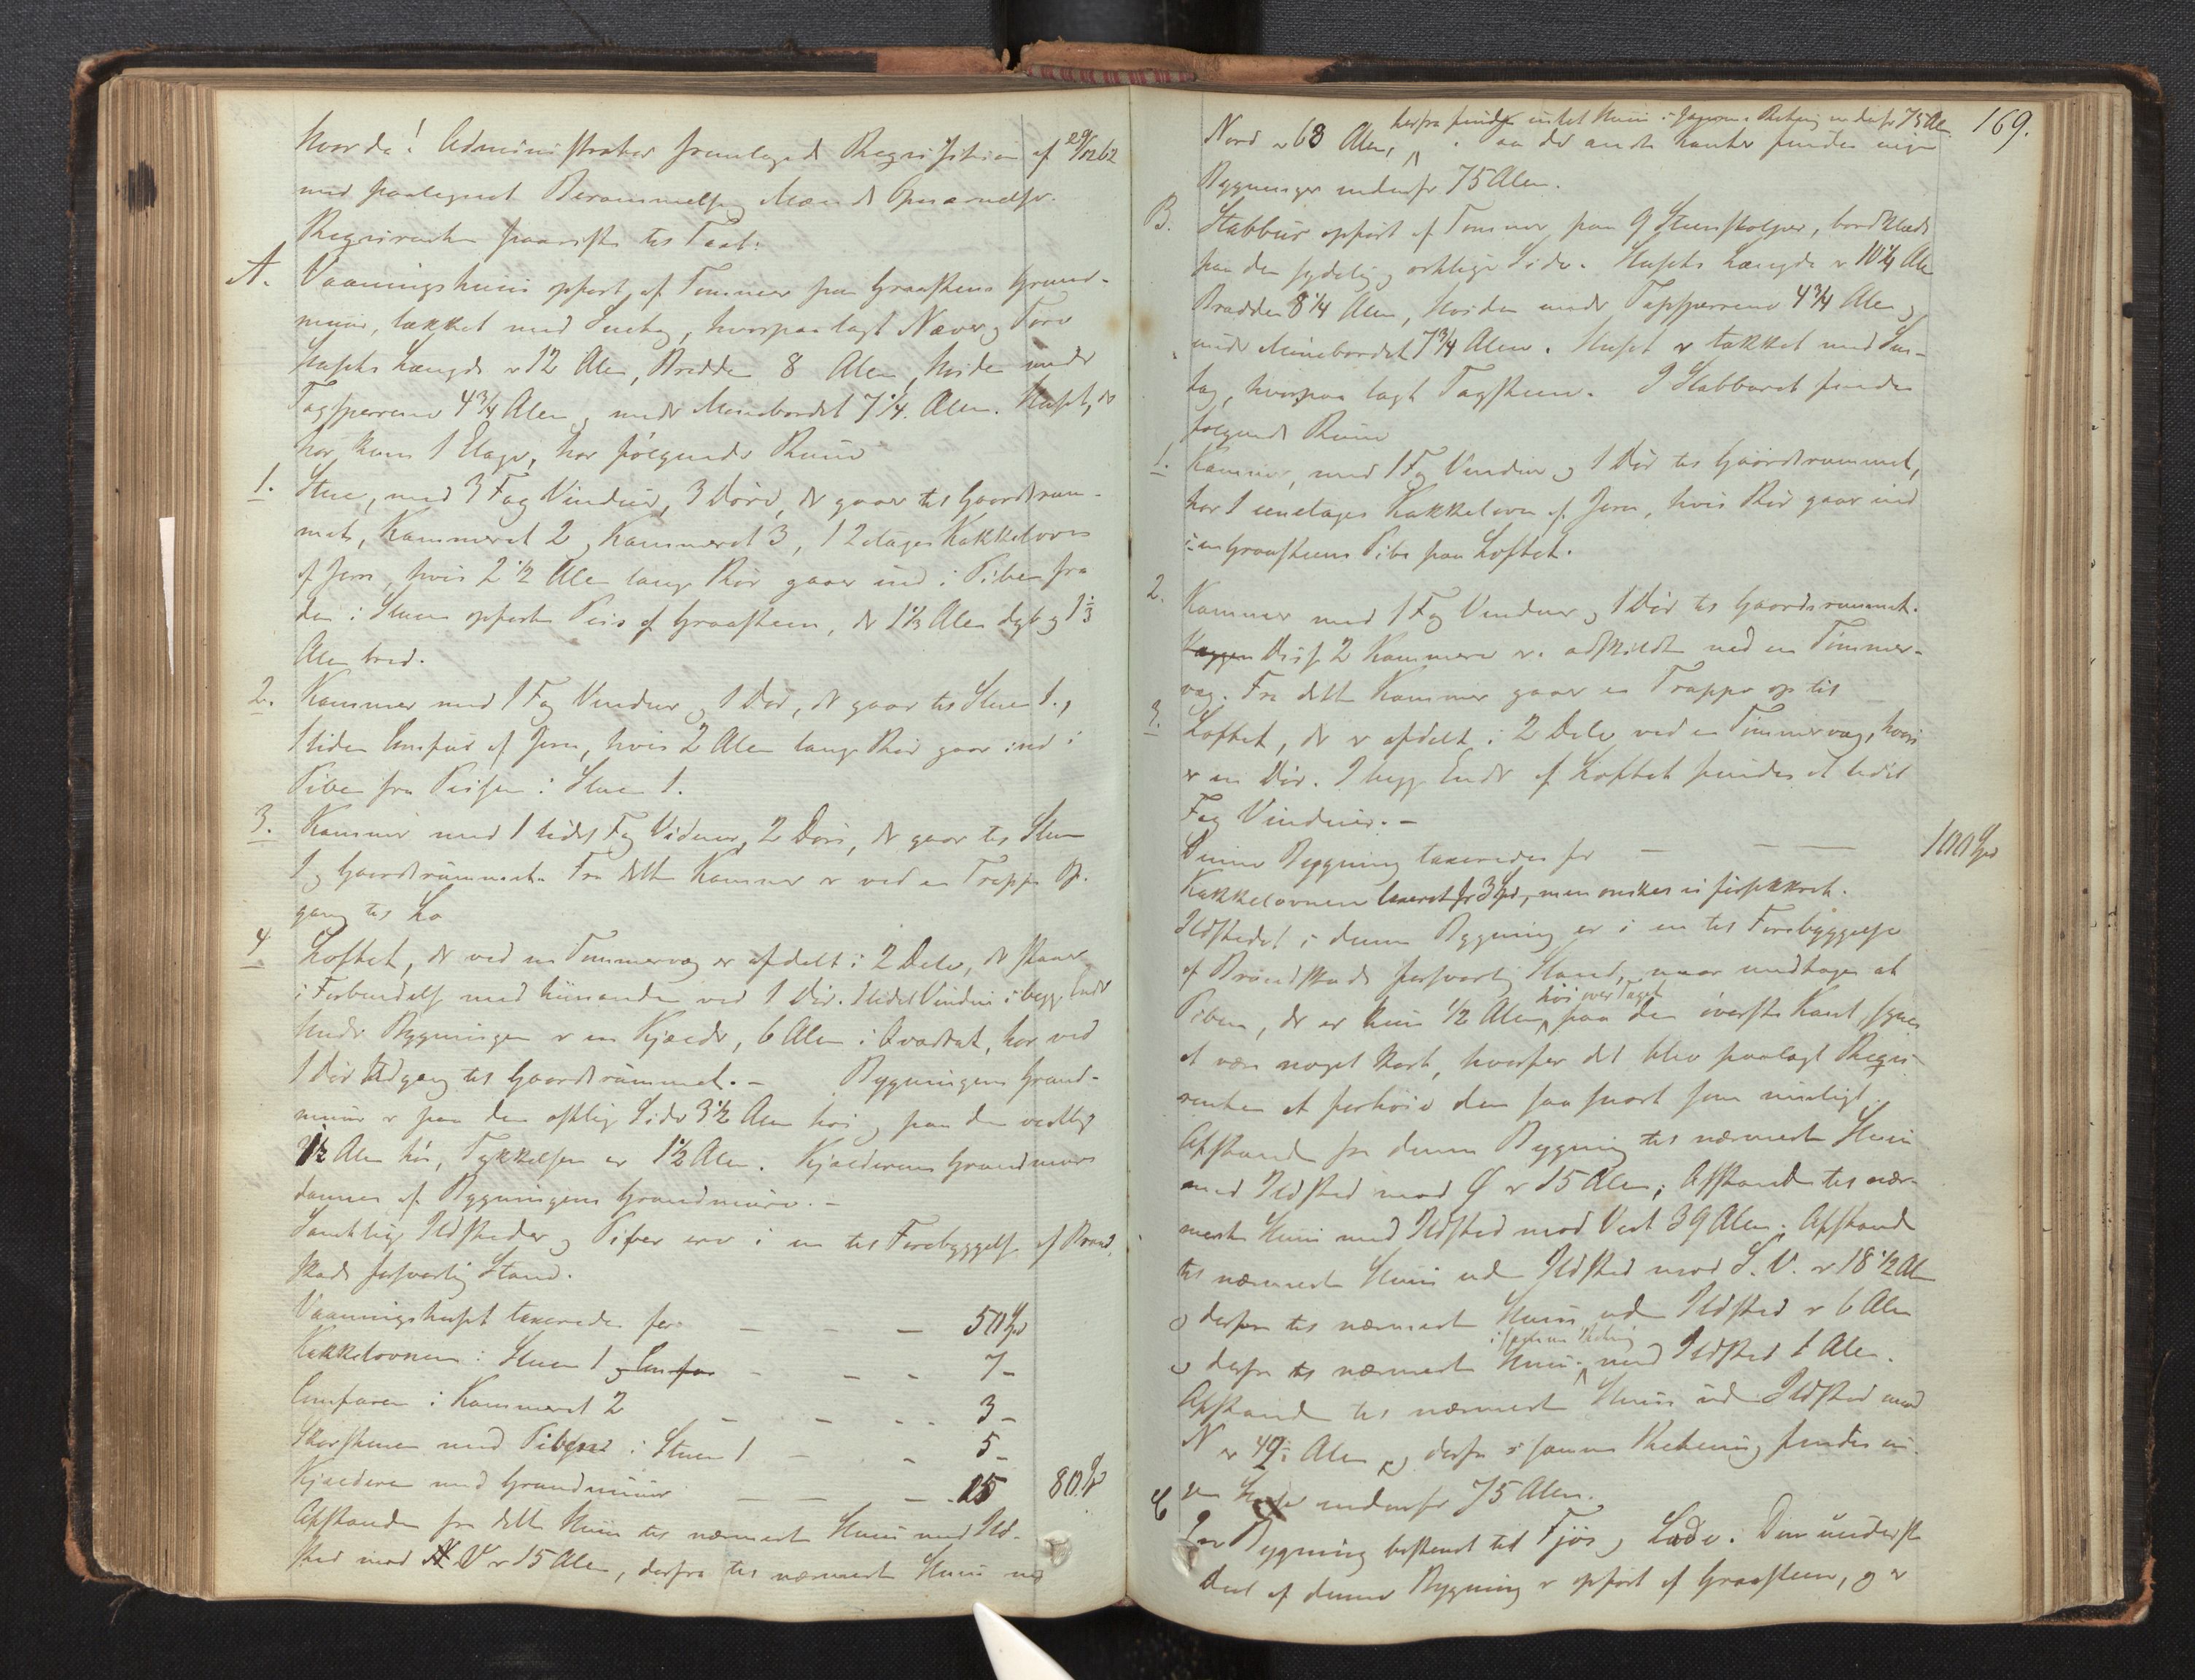 Hvorda! Administrator fremlagde Reqvisition af 29/12 62
med paategnet Berammelse og Mænds Opnævnelse.
Reqvirenten paaviste til Taxt:
A. Vaaningshuus opført af Tømmer paa Graasteens Grund-
muur, tækket med Suetag, hvorpaa lagt Næver og Torv
Husets Længde er 12 Alen, Bredden 8 Alen, Høiden under
Tagsperrene 4 3/4 Alen og under Mønebordet 7 1/4 Alen. Huset, der
har kun 1 Etage, har følgende Rum
1. Stue, med 3 Fag Vinduer, 3 Døre, der gaar til Gaardsrum-
met, Kammeret 2 og Kammeret 3, 1 2 etages Kakkelovn
af Jern, hvis 2 1/2 Alen lange Rør gaar ind i Piben fra
den i Stuen opførte Peis af Graasteen, der 1 1/3 Alen dyb og 1 1/3
Alen bred.
2. Kammer med 1 Fag Vinduer og 1 Dør, der gaar til Stuen 1.,
1 liden Comfur af Jern, hvis 2 Alen lange Rør gaar ind i
Piben fra Peisen i Stuen 1.
3. Kammer med 1 lidet Fag Viduer, 2 Døre, der gaar til Stuen
1 og Gaardsrummet. Fra dette Kammer er ved en Trappe Op-
gang til Lo
4 Loftet, der ved en Tømmervæg er afdelt i 2 Dele, der staaer
i Forbindelse med hinanden ved 1 Dør. 1 lidet Vindue i begge Ender
Under Bygningen er en Kjælder, 6 Alen i Qvadrat, har ved
1 Dør Udgang til Gaardsrummet. – Bygningens Grund-
muur er paa den østlige Side 3 1/2 Alen høi og paa den vestlige
1 1/2 Alen høi, Tykkelsen er 1 1/2 Alen. Kjælderens Grundmure
dannes af Bygningens Grundmure. –
Samtlige Ildsteder og Piber ere i en til Forebyggelse af Brand-
skade forsvarlig Stand.
Vaaningshuset taxeredes for – – – 50 Spd
Kakkelovnen i Stuen 1 og Comfur – – – 7 –
Comfuren i Kammeret 2 – – – 3 –
Skorstenen med Piben i Stuen 1 – – 5 –
Kjælderen med Grundmuur – – – 15 80 Spd
Afstanden fra dette Huus til nærmeste Huus med Ild-
sted mod V er 15 Alen, derfra til nærmeste Huus mod
169.
herfra findes intet Huus i samme Retning indenfor 75 Al
Nord er 68 Alen, paa de andre Kanter findes ingen
Bygninger indenfor 75 Alen.
B. Stabbur opført af Tømmer paa 9 Steenstolper, bordklædt
paa den sydlige og østlige Side. Husets Længde er 10 1/4 Alen
Bredden 8 1/4 Alen, Høiden under Tagsperrene 4 3/4 Alen og
under Mønebordet 7 3/4 Alen. Huset er tækket med Sue-
tag, hvorpaa lagt Tagsteen. I Stabburet findes
følgende Rum
1. Kammer, med 1 Fag Vinduer og 1 Dør til Gaardsrummet,
har 1 eenetages Kakkelovn af Jern, hvis Rør gaar ind
i en Graasteens Pibe paa Loftet.
2. Kammer med 1 Fag Vinduer og 1 Dør til Gaardsrummet.
Væggen Disse 2 Kammere er adskildte ved en Tømmer-
væg. Fra dette Kammer gaar en Trappe op til
3. Loftet, der er afdelt i 2 Dele ved en Tømmervæg, hvori
er en Dør. I begge Ender af Loftet findes et lidet
Fag Vinduer. –
Denne Bygning taxeredes for – – – 100 Spd
Kakkelovnen taxeret for 3 Spd, men ønskes ei forsikkret.
Ildstedet i denne Bygning er i en til Forebyggelse
af Brandskade forsvarlig Stand, naar undtages at
høi over Taget
Piben, der er kun 1/2 Alen paa den øverste Kant, synes
at være noget kort, hvorfor det blev paalagt Reqvi-
renten at forhøie den saa snart som muligt.
Afstanden fra denne Bygning til nærmeste Huus
med Ildsted mod Ø er 15 Alen; Afstanden til nær-
meste Huus med Ildsted mod Vest 39 Alen. Afstanden
til nærmeste Huus uden Ildsted mod S.V. er 18 1/2 Al
og derfra til nærmeste Huus uden Ildsted er 6 Alen
i samme Retning
og derfra til nærmeste Huus med Ildsted 1 Alen.
Afstanden til nærmeste Huus uden Ildsted mod
N er 49 Alen og derfra i samme Retning findes in-
gen Huse indenfor 75 Alen.
C En Bygning bestemt til Fjøs og Lade. Den underste
Deel af denne Bygning er opført af Graasteen, og er